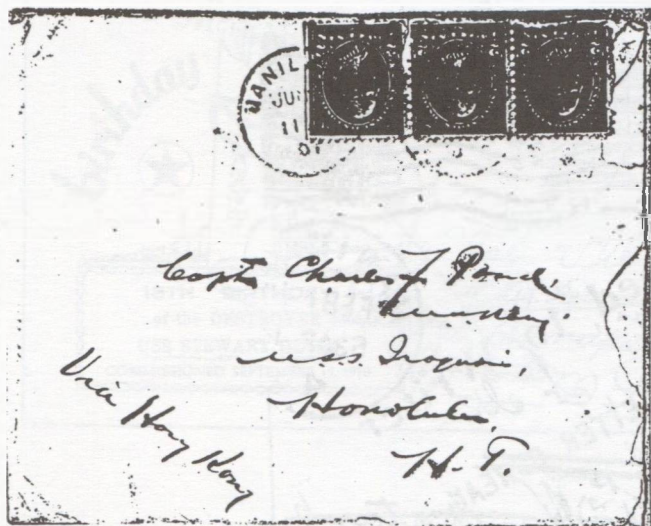 MANIL
JUN
11
01
Capt Charles F Pond,
USS Iroquois,
Honolulu,
H. T.
Via Hong Kong